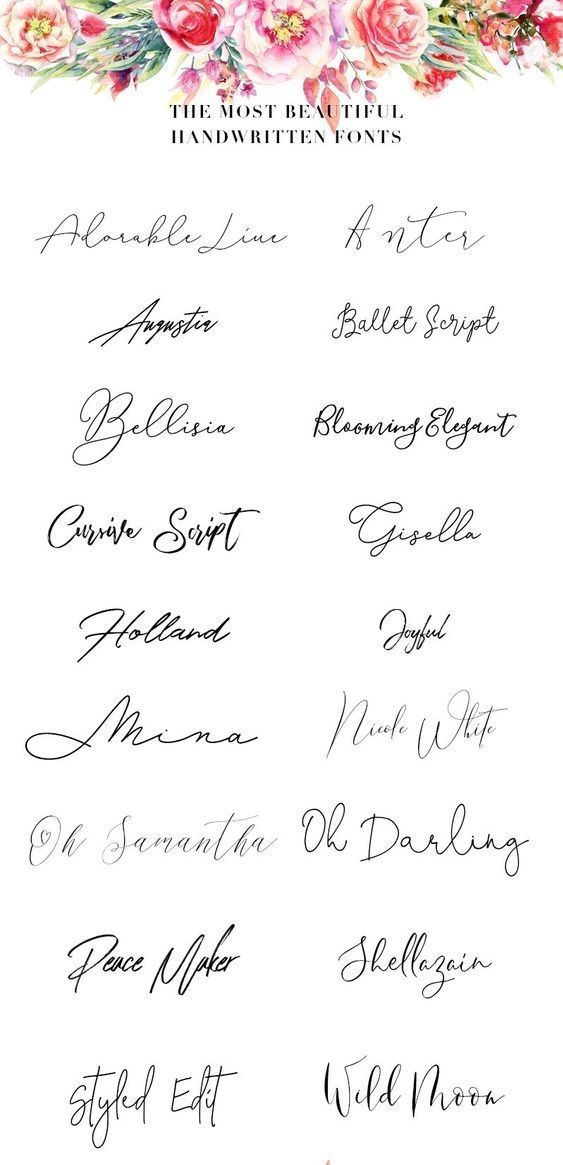 THE MOST BEAUTIFUL
HANDWRITTEN FONTS
Adorable Line Anter
Augustia Ballet Script
Bellisia Blooming Elegant
Cursive Script Gisella
Holland Joyful
Mina Nicole White
Oh Samantha Oh Darling
Peace Maker Shellazain
Styled Edit Wild Moon